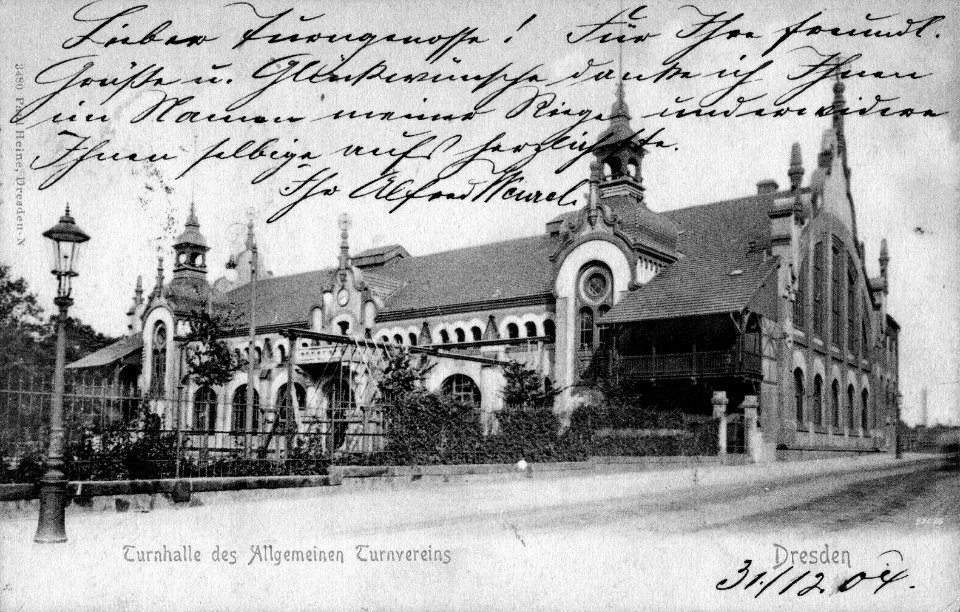 Lieber Turngenosse! Für Ihre freundl.
Grüsse u. Glückwünsche danke ich Ihnen
im Namen meiner Riege und erwidere
Ihnen selbige aufs herzlichste.
Ihr Alfred
3480 Heine, Dresden-N
Turnhalle des Allgemeinen Turnvereins
Dresden
31./12. 04.